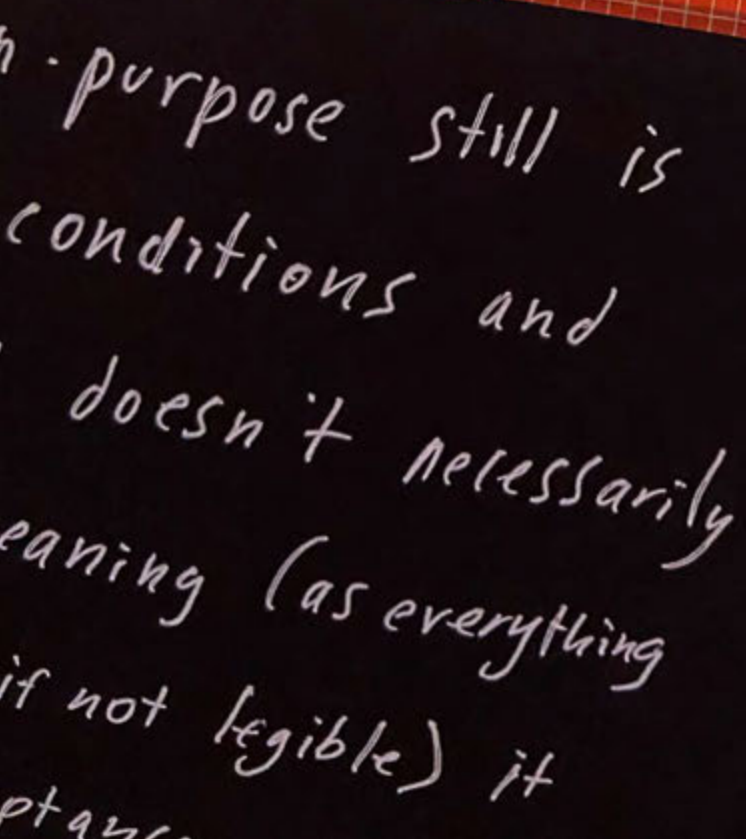 n-purpose still is
conditions and
doesn't necessarily
eaning (as everything
if not legible) it
ptanc